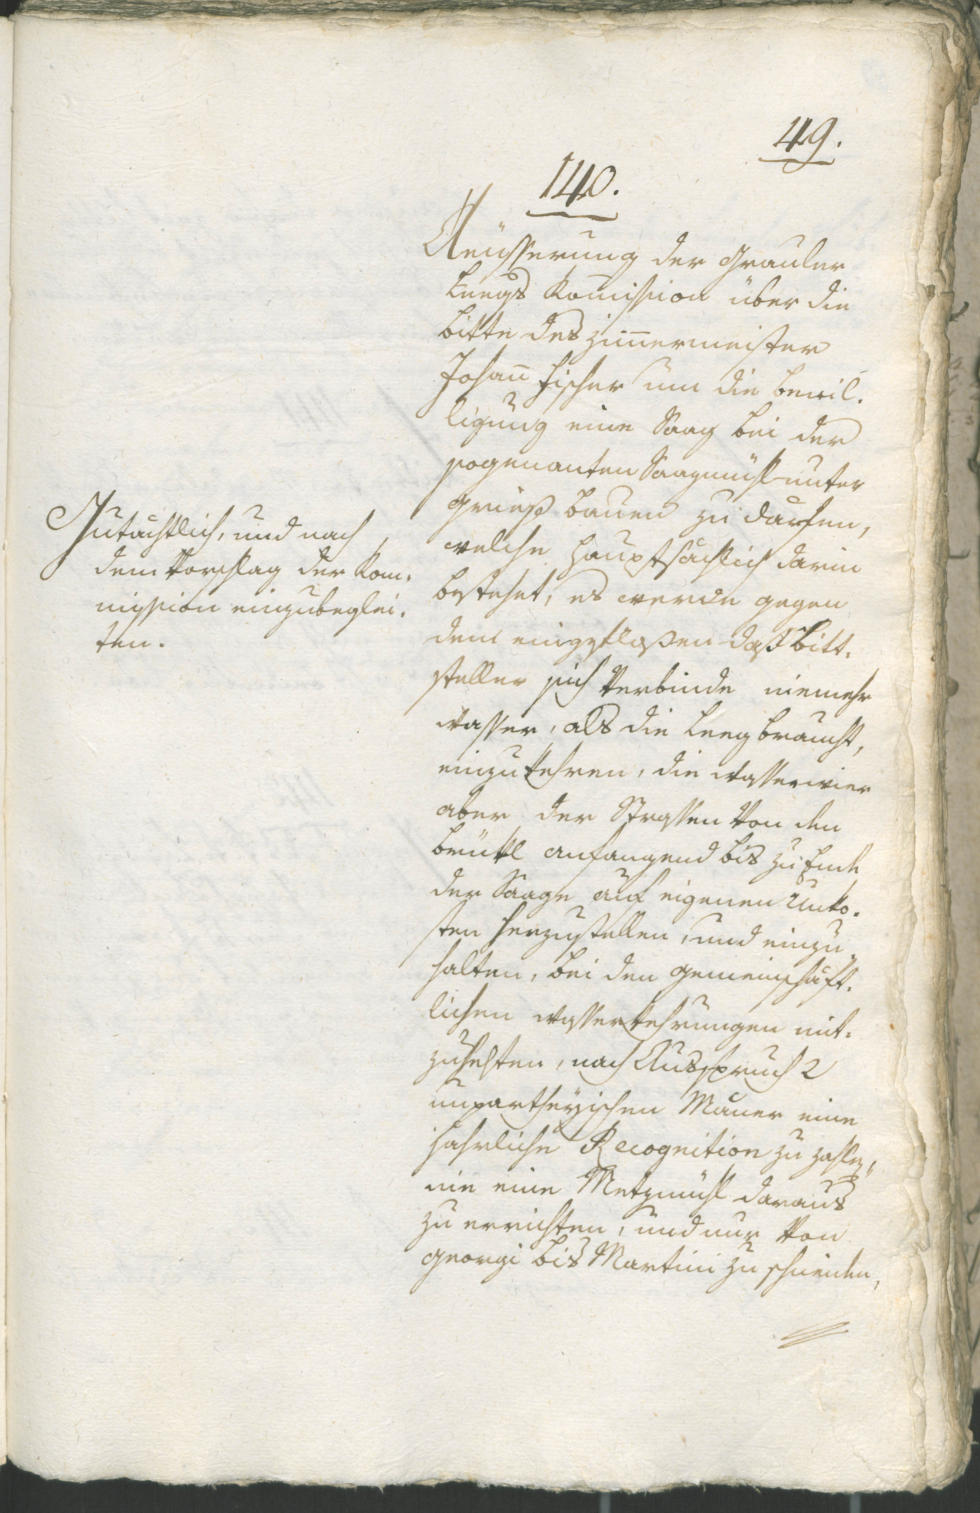 49.
140.
Aeüsserung der Grauler
Leegs Kom̅ission über die
bitte des Zim̅ermeister
Johan̅ Fischer um die bewil-
ligung eine Saag bei der
sogenanten Saagmühl unter
Grieß bauen zu därfen,
welche hauptsächlich darin
bestehet, es werde gegen
dem daß Bitt-
steller sich Verbinde niemehr
Wasser, als die Leeg braucht,
einzukehren, die Wasserwier
aber der Strassen Von den
brükl anfangend bis zu Ende
der Saage auf eigenen Unko-
sten herzustellen, und einzu-
halten, bei den gemeinschäft-
lichen Wasserkehrungen mit-
zuhelfen, nach Ausspruch 2
unpartheyischen Mäner eine
jährliche Recognition zu zahlen,
nie eine Metzmühl daraus
zu errichten, und nur Von
Georgi bis Martini zu schneiden,
Gutächtlich, und nach
dem Vorschlag der Kom-
mission einzubeglei-
ten.